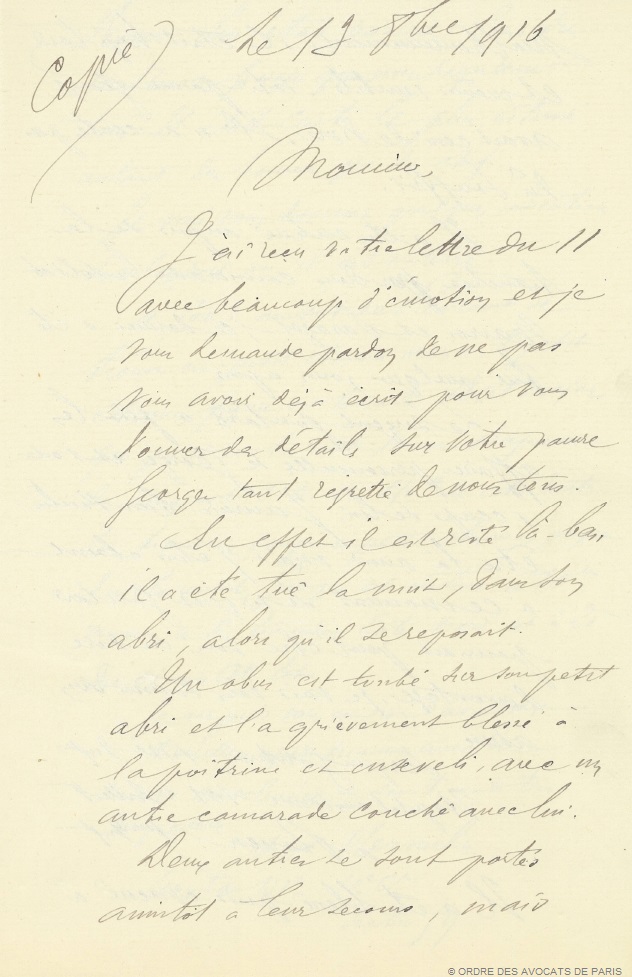 Copié
Le 13 8bre 1916
Monsieur,
J'ai reçu votre lettre du 11
avec beaucoup d'émotion et je
vous demande pardon de ne pas
vous avoir déjà écrit pour vous
donner des détails sur votre pauvre
Georges tant regretté de nous tous.
En effet il est resté là-bas,
il a été tué la nuit, dans son
abri, alors qu'il se reposait.
Un obus est tombé sur son petit
abri et l'a grièvement blessé à
la poitrine et enseveli, avec un
autre camarade couché avec lui.
Deux autres se sont portés
aussitôt à leur secours, mais
© ORDRE DES AVOCATS DE PARIS